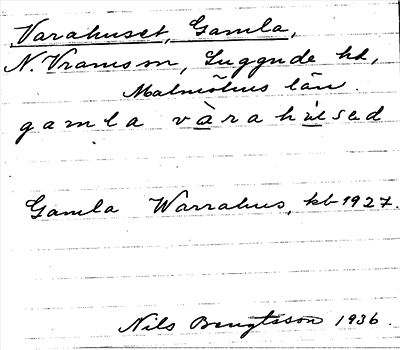 Varahuset, Gamla,
N. Vrams sn, Luggude hd,
Malmöhus län.
gamla vàrahu̇sed
Gamla Warrahus, kb 1927.
Nils Bengtsson 1936